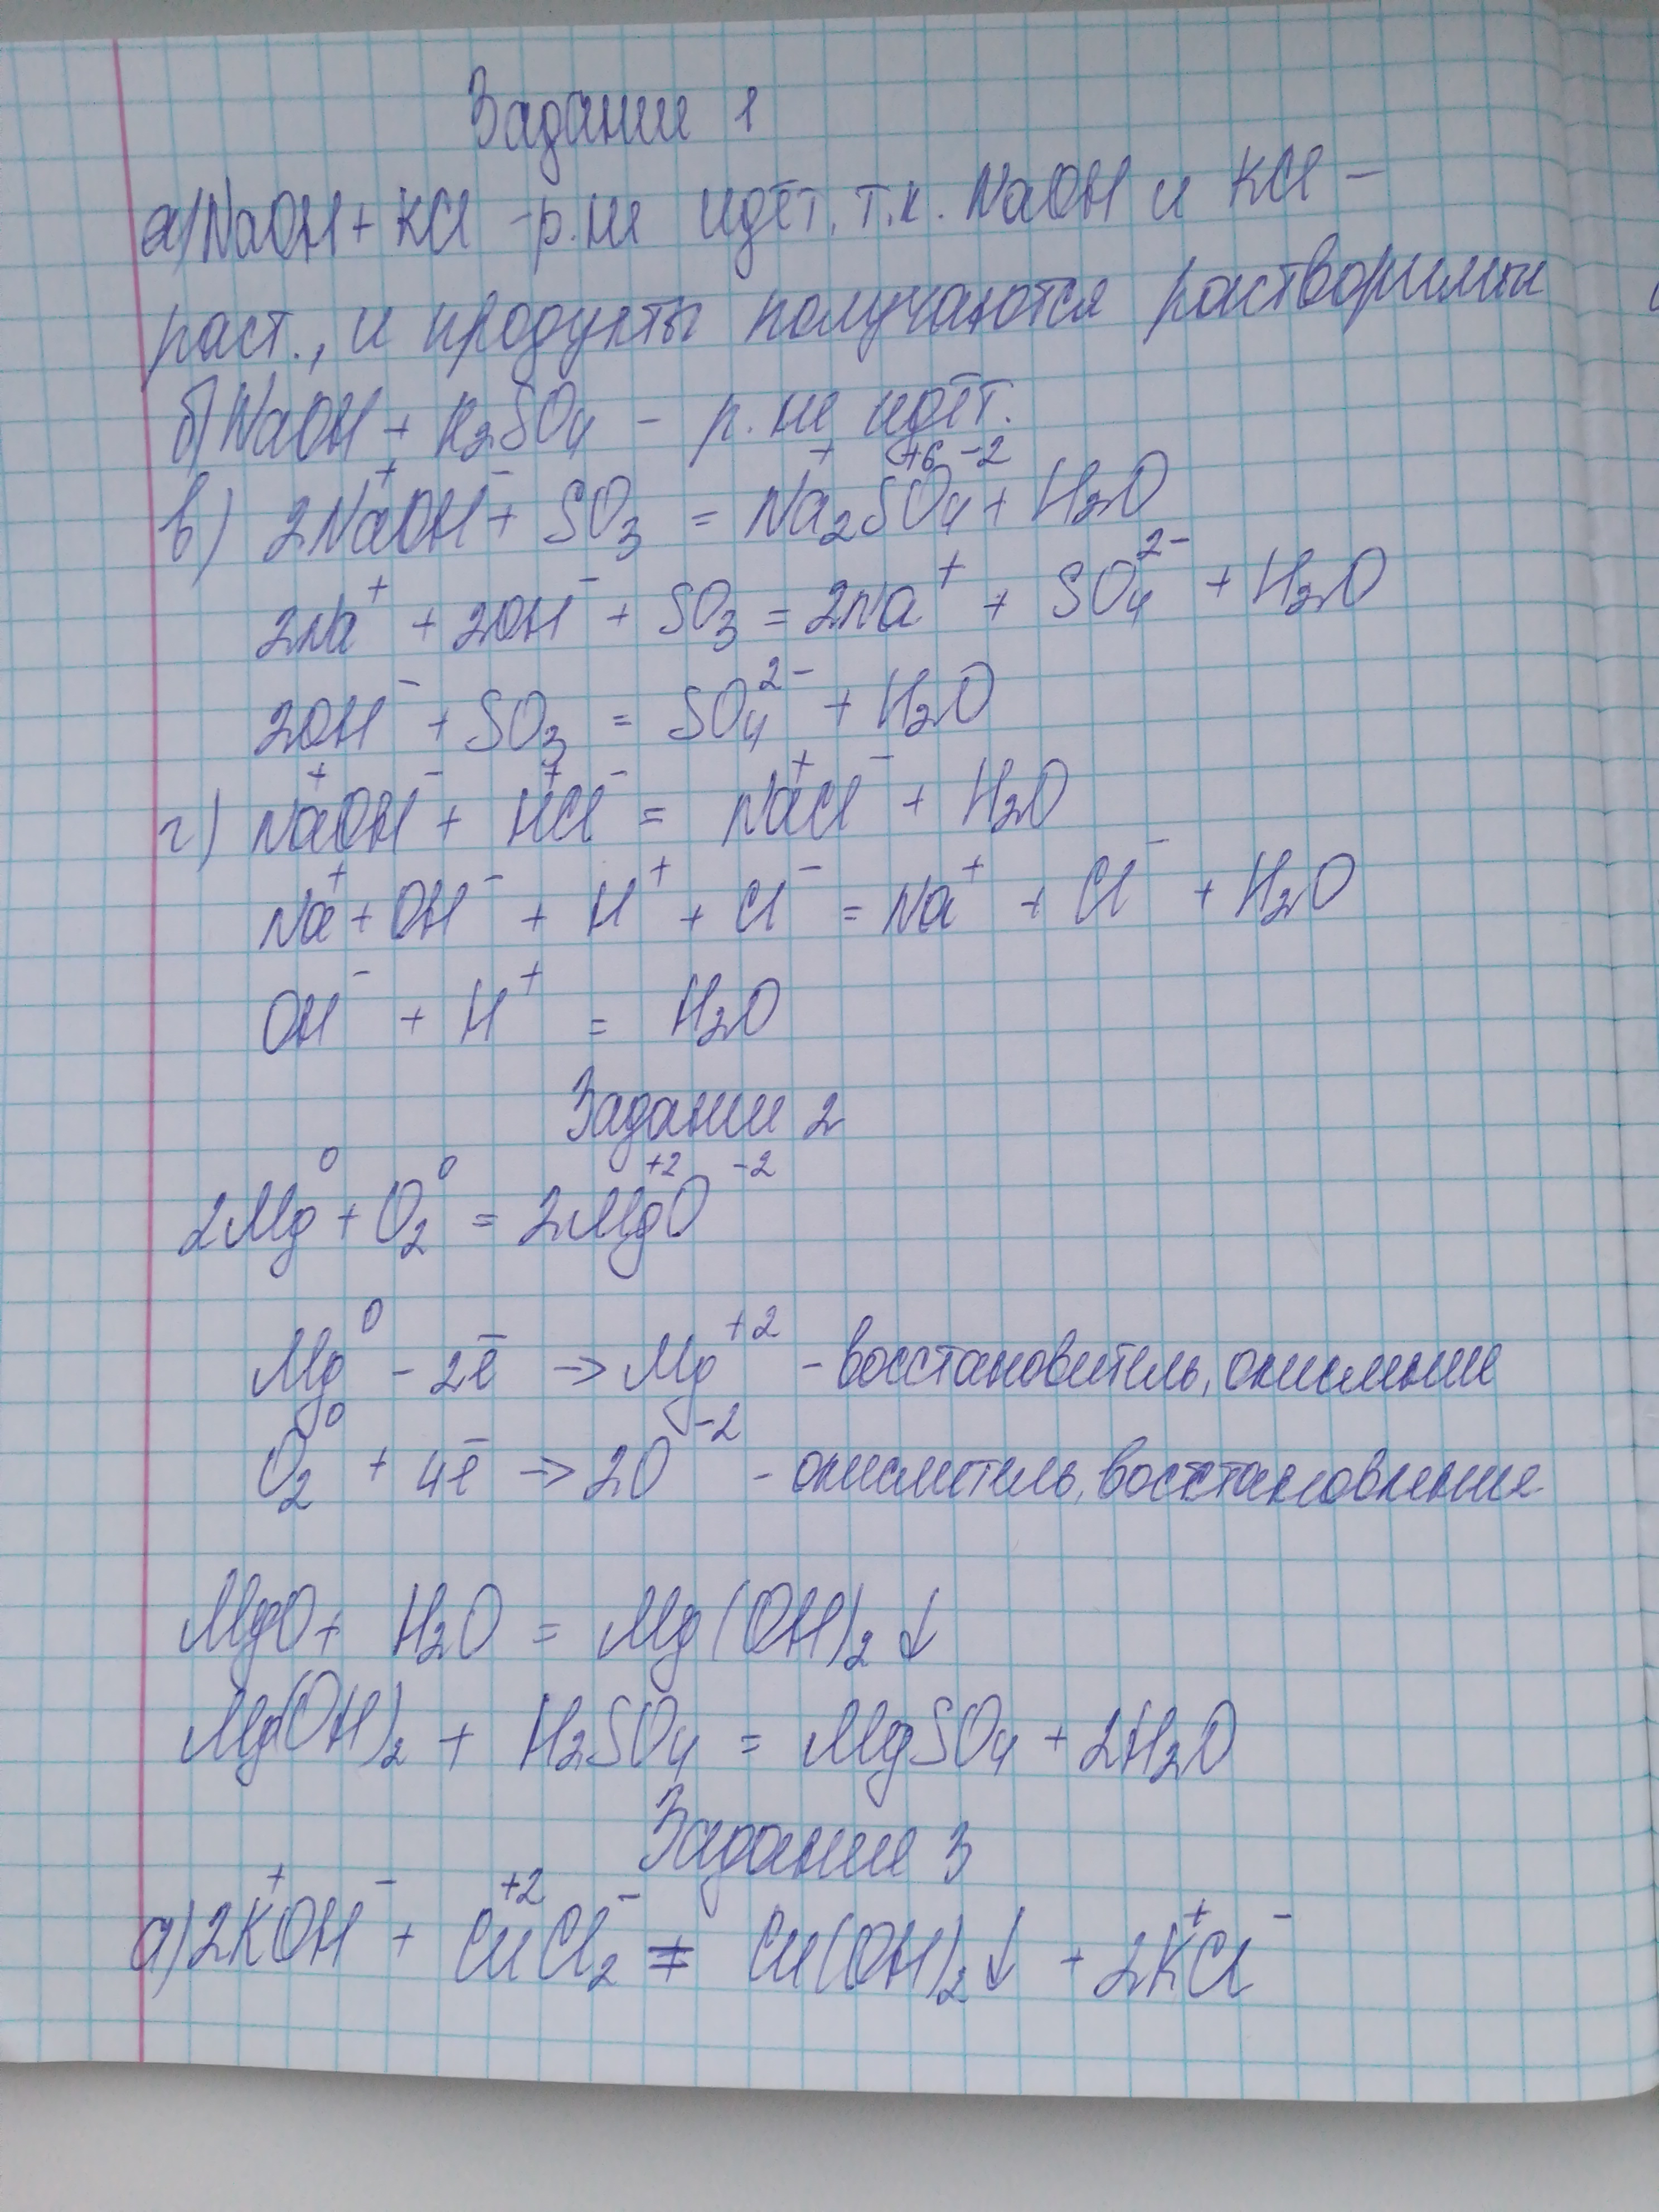 Задание 1
а) NaOH + KCl - р. не идёт, т.к. NaOH и KCl -
раст., и продукты получаются растворимы
б) NaOH + K₂SO₄ - р. не идёт.
в) 2Na⁺OH⁻ + SO₃ = Na₂⁺S⁺⁶O₄⁻² + H₂O
2Na⁺ + 2OH⁻ + SO₃ = 2Na⁺ + SO₄²⁻ + H₂O
2OH⁻ + SO₃ = SO₄²⁻ + H₂O
г) Na⁺OH⁻ + H⁺Cl⁻ = Na⁺Cl⁻ + H₂O
Na⁺ + OH⁻ + H⁺ + Cl⁻ = Na⁺ + Cl⁻ + H₂O
OH⁻ + H⁺ = H₂O
Задание 2
2Mg⁰ + O₂⁰ = 2Mg⁺²O⁻²
Mg⁰ - 2ē → Mg⁺² - восстановитель, окисление
O₂⁰ + 4ē → 2O⁻² - окислитель, восстановление
MgO + H₂O = Mg(OH)₂↓
Mg(OH)₂ + H₂SO₄ = MgSO₄ + 2H₂O
Задание 3
а) 2K⁺OH⁻ + Cu⁺²Cl₂⁻ = Cu(OH)₂↓ + 2K⁺Cl⁻